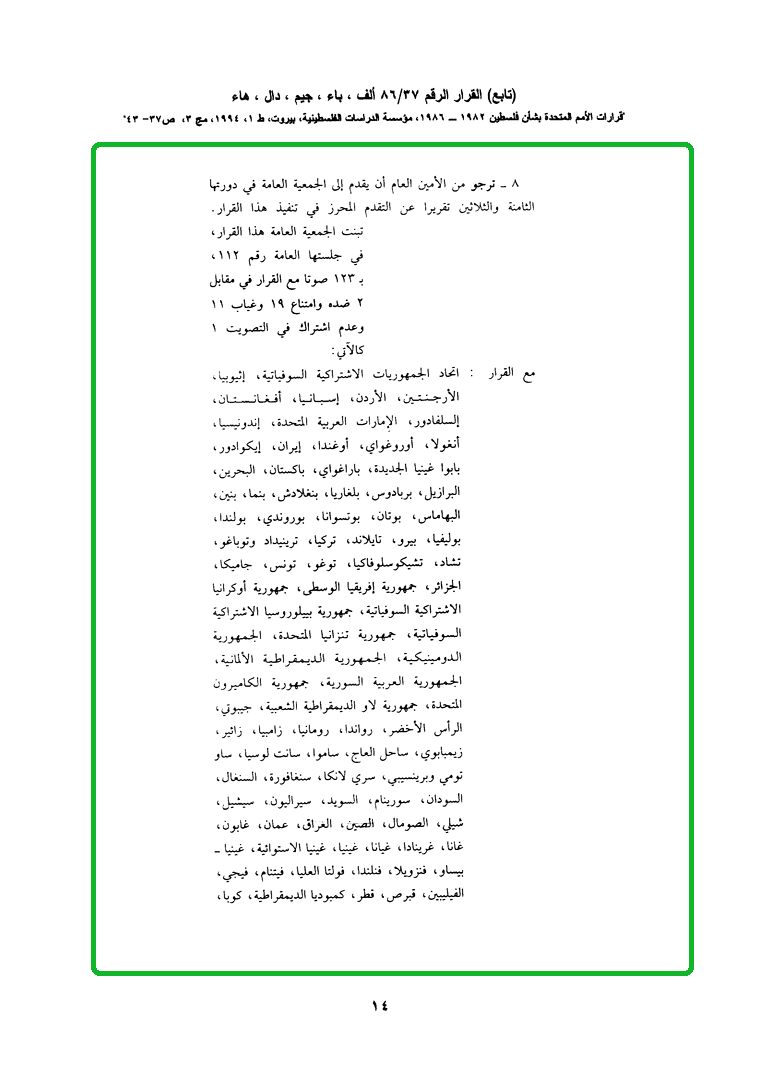 (تابع) القرار الرقم ٨٦/٣٧ ألف ، باء ، جيم ، دال ، هاء
"قرارات الأمم المتحدة بشأن فلسطين ١٩٨٢ ــ ١٩٨٦، مؤسسة الدراسات الفلسطينية، بيروت، ط ١، ١٩٩٤، مج ٣، ص٣٧- ٤٣"
٨ ـ ترجو من الأمين العام أن يقدم إلى الجمعية العامة في دورتها
الثامنة والثلاثين تقريرا عن التقدم المحرز في تنفيذ هذا القرار.
تبنت الجمعية العامة هذا القرار،
في جلستها العامة رقم ١١٢،
بـ ١٢٣ صوتا مع القرار في مقابل
٢ ضده وامتناع ١٩ وغياب ١١
وعدم اشتراك في التصويت ١
كالآتي:
مع القرار : اتحاد الجمهوريات الاشتراكية السوفياتية، إثيوبيا،
الأرجنتين، الأردن، إسبانيا، أفغانستان،
إلسلفادور، الإمارات العربية المتحدة، إندونيسيا،
أنغولا، أوروغواي، أوغندا، إيران، إيكوادور،
بابوا غينيا الجديدة، باراغواي، باكستان، البحرين،
البرازيل، بربادوس، بلغاريا، بنغلادش، بنما، بنين،
البهاماس، بوتان، بوتسوانا، بوروندي، بولندا،
بوليفيا، بيرو، تايلاند، تركيا، ترينيداد وتوباغو،
تشاد، تشيكوسلوفاكيا، توغو، تونس، جاميكا،
الجزائر، جمهورية إفريقيا الوسطى، جمهورية أوكرانيا
الاشتراكية السوفياتية، جمهورية بييلوروسيا الاشتراكية
السوفياتية، جمهورية تنزانيا المتحدة، الجمهورية
الدومينيكية، الجمهورية الديمقراطية الألمانية،
الجمهورية العربية السورية، جمهورية الكاميرون
المتحدة، جمهورية لاو الديمقراطية الشعبية، جيبوتي،
الرأس الأخضر، رواندا، رومانيا، زامبيا، زائير،
زيمبابوي، ساحل العاج، ساموا، سانت لوسيا، ساو
تومي وبرينسيبي، سري لانكا، سنغافورة، السنغال،
السودان، سورينام، السويد، سيراليون، سيشيل،
شيلي، الصومال، الصين، العراق، عمان، غابون،
غانا، غرينادا، غيانا، غينيا، غينيا الاستوائية، غينيا ـ
بيساو، فنزويلا، فنلندا، فولتا العليا، فيتنام، فيجي،
الفيليبين، قبرص، قطر، كمبوديا الديمقراطية، كوبا،
١٤